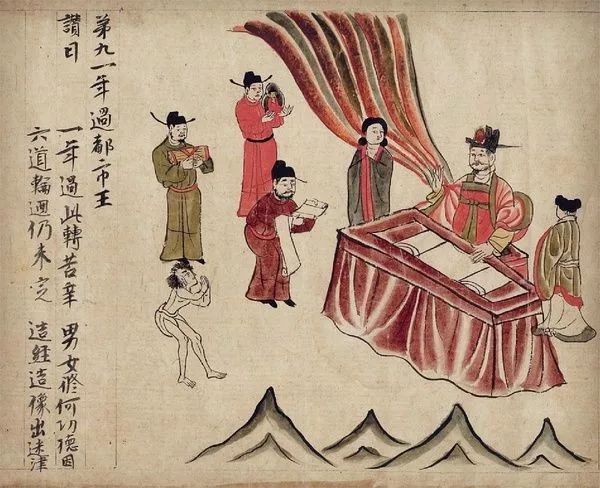 第九一年過都市王
讚曰 一年過此轉苦辛 男女修何功德因
六道輪迴仍未定 造經造像出迷津